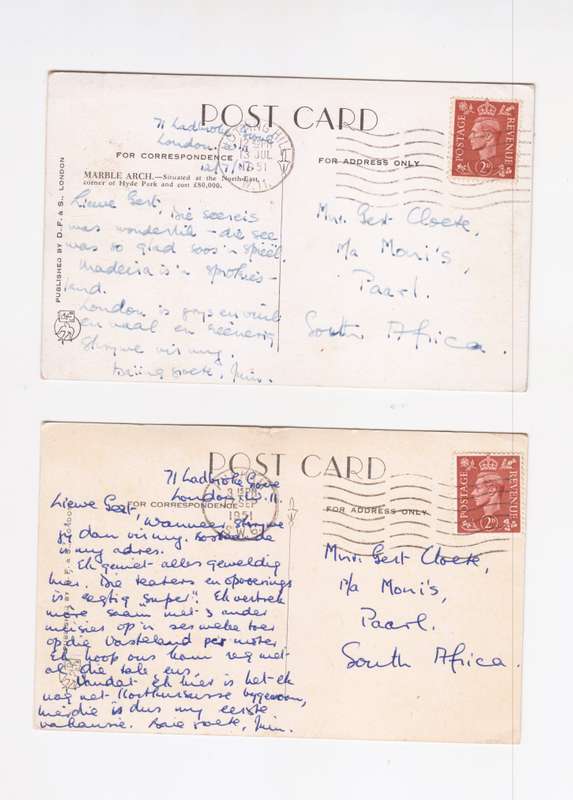 POST CARD
71 Ladbroke Grove
London. W. 11
FOR CORRESPONDENCE
FOR ADDRESS ONLY
MARBLE ARCH.—Situated at the North-East
corner of Hyde Park and cost £80,000.
PUBLISHED BY D. F. & S., LONDON
13 JUL
1951
POSTAGE
REVENUE
2D
Liewe Gert,
Die seereis
was wonderlik - die see
was so glad soos 'n spieël.
Madeira is 'n sprokies-
land.
London is grys en vuil
en vaal en
Skrywe vir my.
groete, Min.
Mnr. Gert Cloete,
p/a Moni's,
Paarl.
South Africa.
POST CARD
71 Ladbroke Grove
London. W. 11.
FOR CORRESPONDENCE
FOR ADDRESS ONLY
3 15 PM
SEP
1951
S.W.
POSTAGE
REVENUE
2D
Liewe Gert,
Wanneer skrywe
jy dan vir my. Bostaande
is my adres.
Ek geniet alles geweldig
hier. Die teaters en opvoerings
is regtig "super". Ek vertrek
môre saam met 3 ander
meisies op 'n ses weke toer
op die Vasteland per motor.
Ek hoop ons kom reg met
al die tale ens.
Vandat Ek hier is het ek
nog net bygewoon,
hierdie is dus my eerste
vakansie. Baie groete, Min.
Mnr. Gert Cloete,
p/a Moni's,
Paarl.
South Africa.